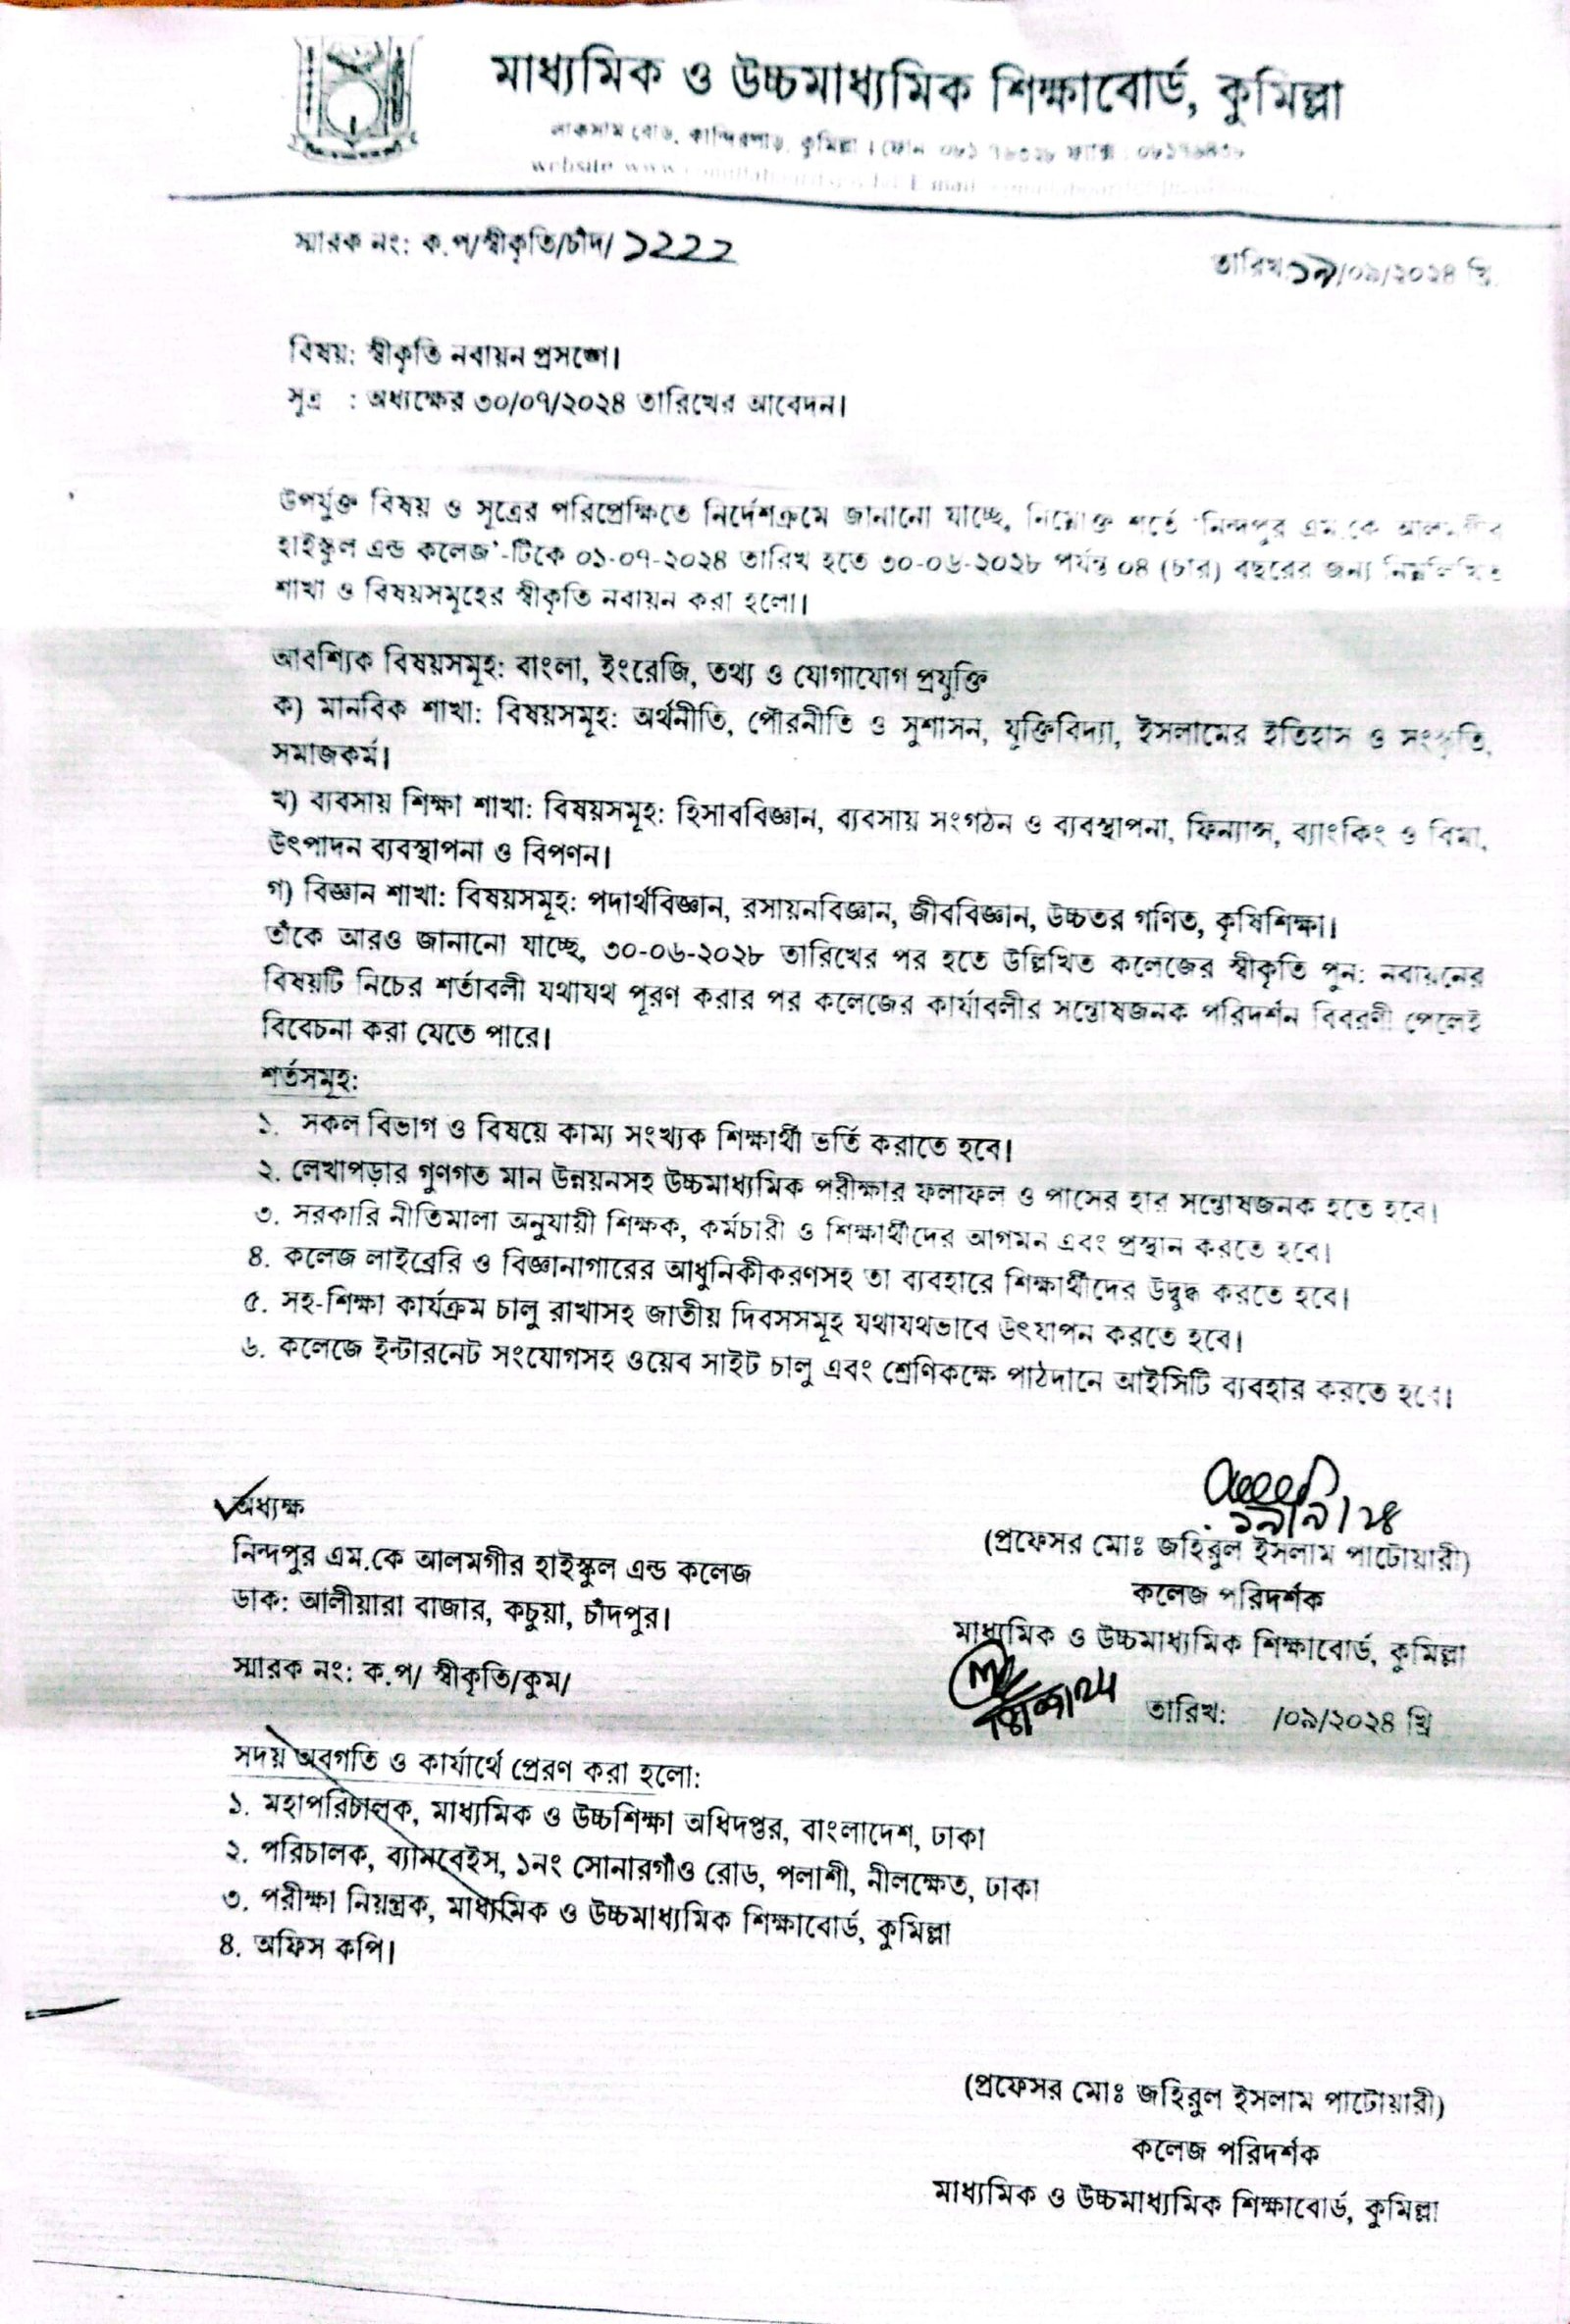 মাধ্যমিক ও উচ্চমাধ্যমিক শিক্ষাবোর্ড, কুমিল্লা
লাকসাম রোড, কান্দিরপাড়, কুমিল্লা । ফোন
website
স্মারক নং: ক.প/স্বীকৃতি/চাঁদ/ ১২২২
তারিখ: ১৯/০৯/২০২৪ খ্রি.
বিষয়: স্বীকৃতি নবায়ন প্রসঙ্গে।
সুত্র : অধ্যক্ষের ৩০/০৭/২০২৪ তারিখের আবেদন।
উপর্যুক্ত বিষয় ও সূত্রের পরিপ্রেক্ষিতে নির্দেশক্রমে জানানো যাচ্ছে, নিম্নোক্ত শর্তে 'নিন্দপুর এম.কে আলমগীর
হাইস্কুল এন্ড কলেজ'-টিকে ০১-০৭-২০২৪ তারিখ হতে ৩০-০৬-২০২৮ পর্যন্ত ০৪ (চার) বছরের জন্য নিম্নলিখিত
শাখা ও বিষয়সমূহের স্বীকৃতি নবায়ন করা হলো।
আবশ্যিক বিষয়সমূহ: বাংলা, ইংরেজি, তথ্য ও যোগাযোগ প্রযুক্তি
ক) মানবিক শাখা: বিষয়সমূহ: অর্থনীতি, পৌরনীতি ও সুশাসন, যুক্তিবিদ্যা, ইসলামের ইতিহাস ও সংস্কৃতি,
সমাজকর্ম।
খ) ব্যবসায় শিক্ষা শাখা: বিষয়সমূহ: হিসাববিজ্ঞান, ব্যবসায় সংগঠন ও ব্যবস্থাপনা, ফিন্যান্স, ব্যাংকিং ও বিমা,
উৎপাদন ব্যবস্থাপনা ও বিপণন।
গ) বিজ্ঞান শাখা: বিষয়সমূহ: পদার্থবিজ্ঞান, রসায়নবিজ্ঞান, জীববিজ্ঞান, উচ্চতর গণিত, কৃষিশিক্ষা।
তাঁকে আরও জানানো যাচ্ছে, ৩০-০৬-২০২৮ তারিখের পর হতে উল্লিখিত কলেজের স্বীকৃতি পুন: নবায়নের
বিষয়টি নিচের শর্তাবলী যথাযথ পূরণ করার পর কলেজের কার্যাবলীর সন্তোষজনক পরিদর্শন বিবরণী পেলেই
বিবেচনা করা যেতে পারে।
শর্তসমূহ:
১. সকল বিভাগ ও বিষয়ে কাম্য সংখ্যক শিক্ষার্থী ভর্তি করাতে হবে।
২. লেখাপড়ার গুণগত মান উন্নয়নসহ উচ্চমাধ্যমিক পরীক্ষার ফলাফল ও পাসের হার সন্তোষজনক হতে হবে।
৩. সরকারি নীতিমালা অনুযায়ী শিক্ষক, কর্মচারী ও শিক্ষার্থীদের আগমন এবং প্রস্থান করতে হবে।
৪. কলেজ লাইব্রেরি ও বিজ্ঞানাগারের আধুনিকীকরণসহ তা ব্যবহারে শিক্ষার্থীদের উদ্বুদ্ধ করতে হবে।
৫. সহ-শিক্ষা কার্যক্রম চালু রাখাসহ জাতীয় দিবসসমূহ যথাযথভাবে উৎযাপন করতে হবে।
৬. কলেজে ইন্টারনেট সংযোগসহ ওয়েব সাইট চালু এবং শ্রেণিকক্ষে পাঠদানে আইসিটি ব্যবহার করতে হবে।
১৯/৯/২৪
অধ্যক্ষ
(প্রফেসর মোঃ জহিরুল ইসলাম পাটোয়ারী)
নিন্দপুর এম.কে আলমগীর হাইস্কুল এন্ড কলেজ
কলেজ পরিদর্শক
ডাক: আলীয়ারা বাজার, কচুয়া, চাঁদপুর।
মাধ্যমিক ও উচ্চমাধ্যমিক শিক্ষাবোর্ড, কুমিল্লা
স্মারক নং: ক.প/ স্বীকৃতি/কুম/
তারিখ: /০৯/২০২৪ খ্রি
সদয় অবগতি ও কার্যার্থে প্রেরণ করা হলো:
১. মহাপরিচালক, মাধ্যমিক ও উচ্চশিক্ষা অধিদপ্তর, বাংলাদেশ, ঢাকা
২. পরিচালক, ব্যানবেইস, ১নং সোনারগাঁও রোড, পলাশী, নীলক্ষেত, ঢাকা
৩. পরীক্ষা নিয়ন্ত্রক, মাধ্যমিক ও উচ্চমাধ্যমিক শিক্ষাবোর্ড, কুমিল্লা
৪. অফিস কপি।
(প্রফেসর মোঃ জহিরুল ইসলাম পাটোয়ারী)
কলেজ পরিদর্শক
মাধ্যমিক ও উচ্চমাধ্যমিক শিক্ষাবোর্ড, কুমিল্লা